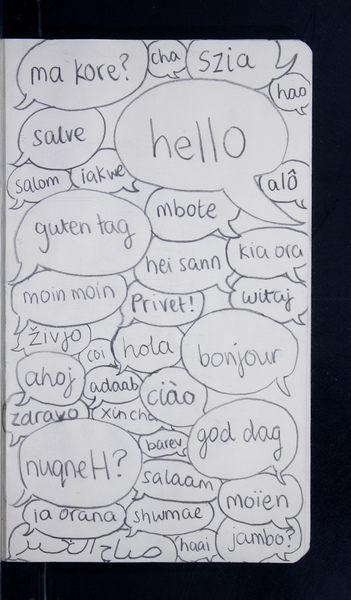 ma kore?
cha
szia
hao
salve
hello
salom
iakwe
alô
mbote
guten tag
kia ora
hei sann
moin moin
Privet!
witaj
živjo
coi
hola
bonjour
ahoj
adaab
ciào
zdravo
xin cha
god dag
barev
nuqneH?
salaam
moïen
ia orana
shwmae
haai
jambo?
صباح الخير